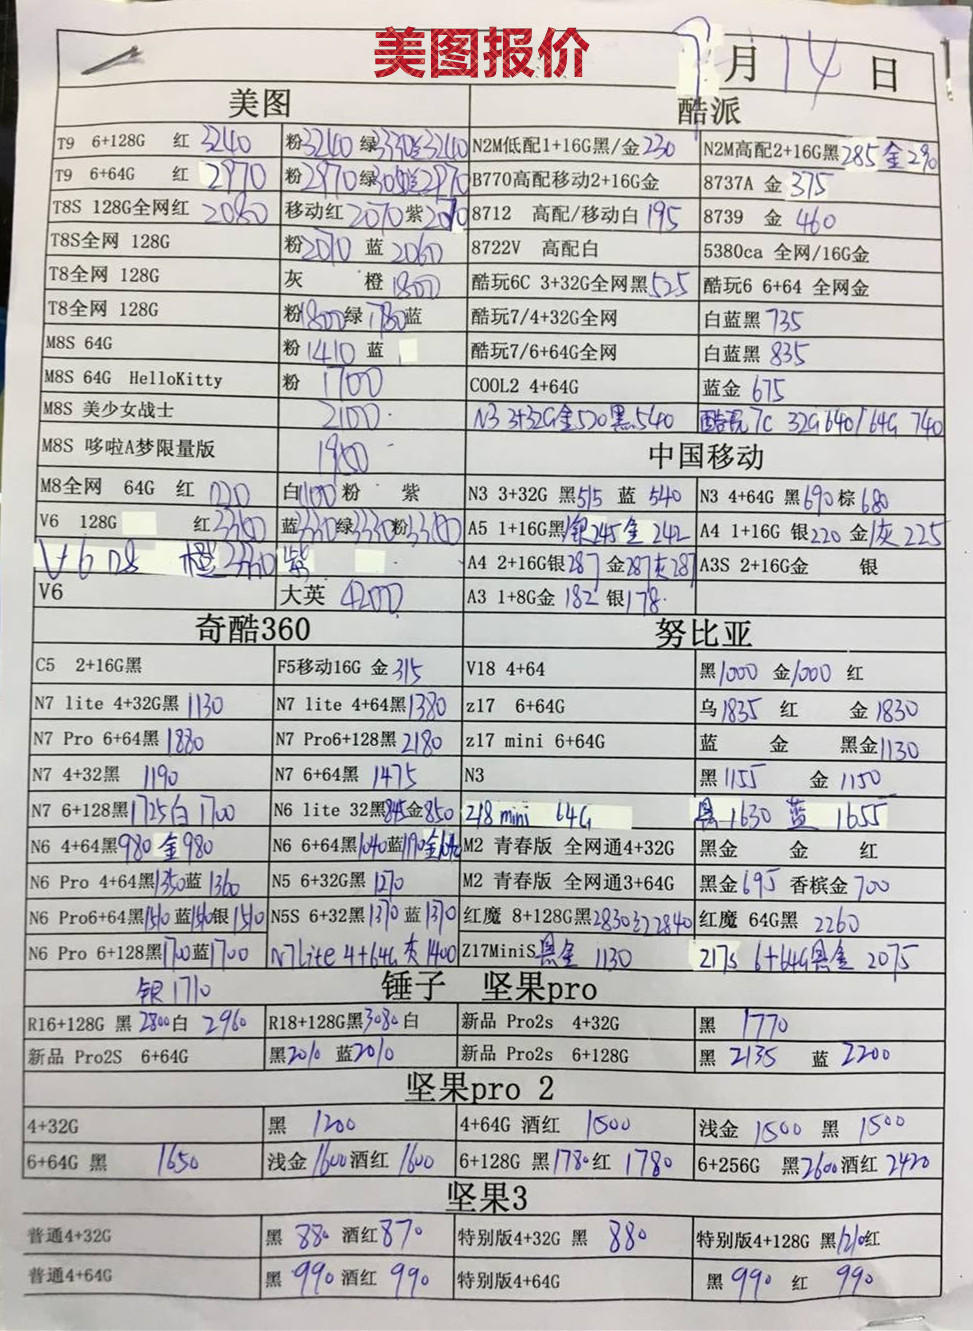 美图报价
月 14 日
美图 酷派
T9 6+128G 红 3240 粉3240 绿3330 3240 N2M低配1+16G黑/金230 N2M高配2+16G黑285 金290
T9 6+64G 红 2970 粉2970 绿 2970 B770高配移动2+16G金 8737A 金 375
T8S 128G全网红 2080 移动红 2070 紫 8712 高配/移动白 195 8739 金 460
T8S全网 128G 粉2070 蓝 2060 8722V 高配白 5380ca 全网/16G金
T8全网 128G 灰 橙 1800 酷玩6C 3+32G全网黑525 酷玩6 6+64 全网金
T8全网 128G 粉1800绿1780蓝 酷玩7/4+32G全网 白蓝黑 735
M8S 64G 粉 1410 蓝 酷玩7/6+64G全网 白蓝黑 835
M8S 64G HelloKitty 粉 1700 COOL2 4+64G 蓝金 675
M8S 美少女战士 2100 N3 3+32G金520黑540 酷玩7C 32G 640/64G 740
M8S 哆啦A梦限量版 中国移动
M8全网 64G 红 白1100 粉 紫 N3 3+32G 黑515 蓝 540 N3 4+64G 黑690棕680
V6 128G 红3360 蓝3330绿3330粉 A5 1+16G黑/银245金 242 A4 1+16G 银220 金/灰 225
V6 橙 紫 A4 2+16G银287 金287灰287 A3S 2+16G金 银
V6 大英 4200 A3 1+8G金 182 银178
奇酷360 努比亚
C5 2+16G黑 F5移动16G 金315 V18 4+64 黑1000 金1000 红
N7 lite 4+32G黑 1130 N7 lite 4+64G黑1380 z17 6+64G 乌1835 红 金1830
N7 Pro 6+64黑 1880 N7 Pro6+128黑 2180 z17 mini 6+64G 蓝 金 黑金1130
N7 4+32黑 1190 N7 6+64黑 1475 N3 黑1155 金 1150
N7 6+128黑1725白1700 N6 lite 32黑845金850 Z18 mini 64G 黑1630 蓝 1655
N6 4+64黑980 金980 N6 6+64黑1040蓝1190金 M2 青春版 全网通4+32G 黑金 金 红
N6 Pro 4+64黑1350蓝1360 N5 6+32G黑 1270 M2 青春版 全网通3+64G 黑金695 香槟金700
N6 Pro6+64黑1510蓝1510银1510 N5S 6+32黑1370 蓝1370 红魔 8+128G黑2830 2840 红魔 64G黑 2260
N6 Pro 6+128黑1700蓝1700 N7Lite 4+64G灰1400 Z17MiniS黑金 1130 Z17s 6+64G黑金 2075
银1710 锤子 坚果pro
R16+128G 黑 2800白 2960 R18+128G黑3080白 新品 Pro2s 4+32G 黑 1770
新品 Pro2S 6+64G 黑2010 蓝2010 新品 Pro2s 6+128G 黑 2135 蓝 2200
坚果pro 2
4+32G 黑 1200 4+64G 酒红 1500 浅金 1500 黑 1500
6+64G 黑 1650 浅金1600酒红 1600 6+128G 黑1780红 1780 6+256G 黑2600酒红 2420
坚果3
普通4+32G 黑 880 酒红870 特别版4+32G 黑 880 特别版4+128G 黑1210红
普通4+64G 黑 990 酒红 990 特别版4+64G 黑 990 红 990